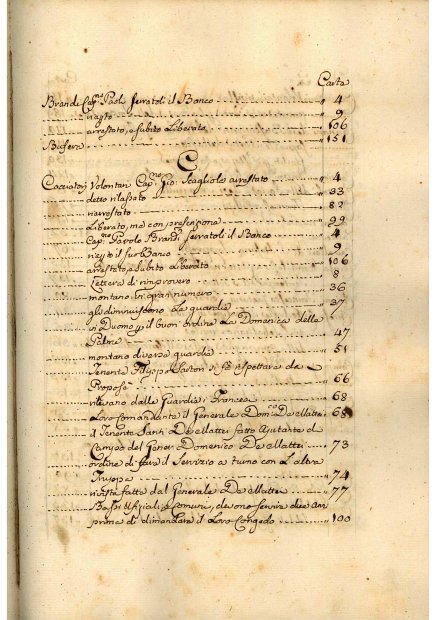 Carta
Brandi Cap.no Paoli serratoli il Banco 4
riapto 9
arrestato, e subito Liberato 106
Bufera 151
C
Cacciatori Volontari Cap.no Gio: Scagliole arrestato 4
detto rilassato 33
riarrestato 82
Liberato, ma con prescrizione 99
Cap.no Pavolo Brandi serratoli il Banco 4
il Banco 9
arrestato, e subito Liberato 106
Lettera di rimprovero 8
montano in gran numero 36
gli diminuiscono La guardia 37
in Duomo per il buon ordine La Domenica delle
Palme 47
montano diverse guardie 51
Tenente Filippo si fà rispettare da
66
rilevano dalle Guardie i Francesi 68
Loro Comandante il Generale Dom.co De Mattei 68
il Tenente Santi De Mattei fatto Ajutante di
Campo del Gener. Domenico De Mattei 73
ordine di fare il Servizio a turno con L'altra
Truppa 74
rivista fatta dal Generale De Mattei 77
Bassi Ufiziali, e Comuni, devono servire due an
prima di dimandare il Loro Congedo 100